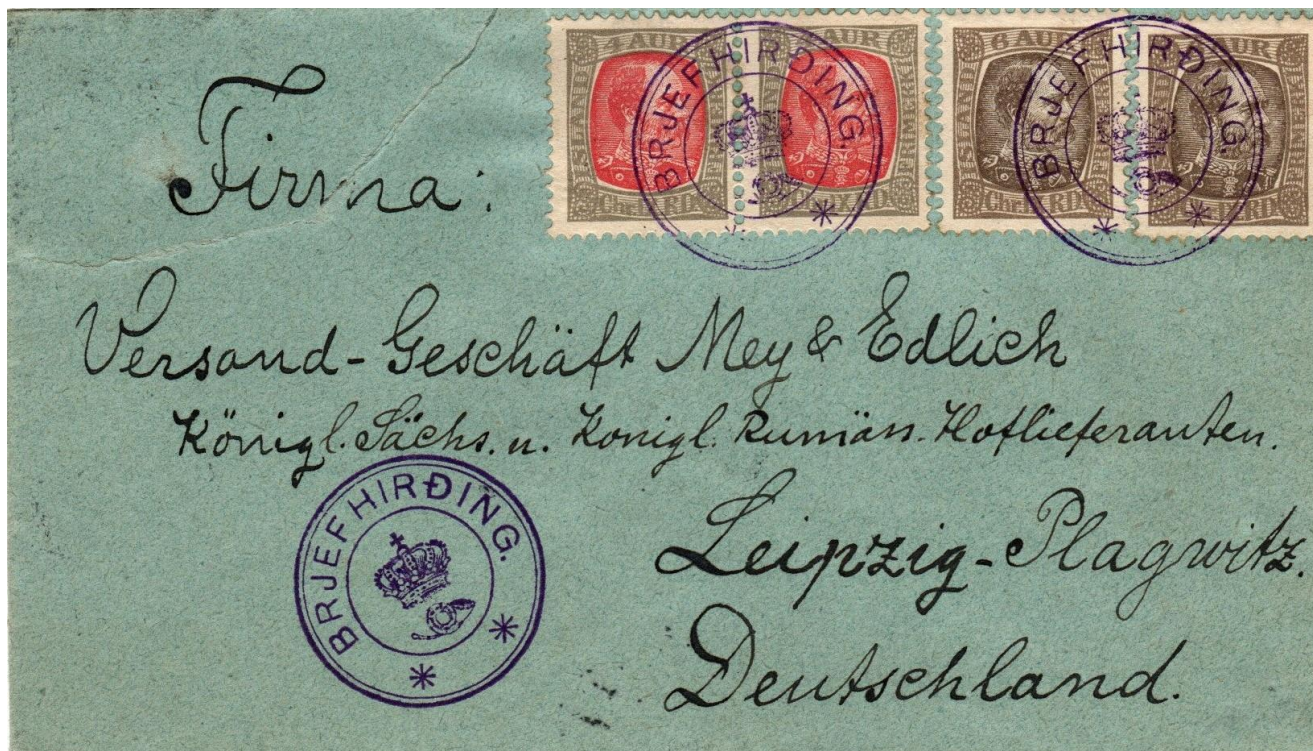 4 AUR AUR 6 AUR AUR
BRJEFHIRÐING. BRJEFHIRÐING.
Firma:
Versand-Geschäft Mey & Edlich
Königl. Sächs. u. Konigl. Rumän. Hoflieferanten.
BRJEFHIRÐING.
Leipzig-Plagwitz.
Deutschland.